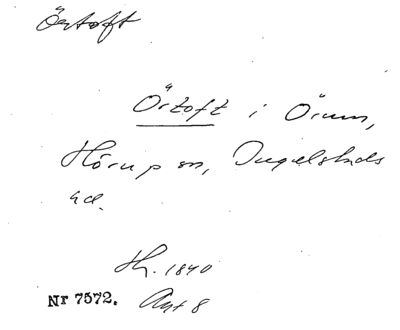 Örtoft
Örtoft i Örum,
Hörup sn, Ingelstads
hd.
Sk. 1840
Nr 7572. Akt 8